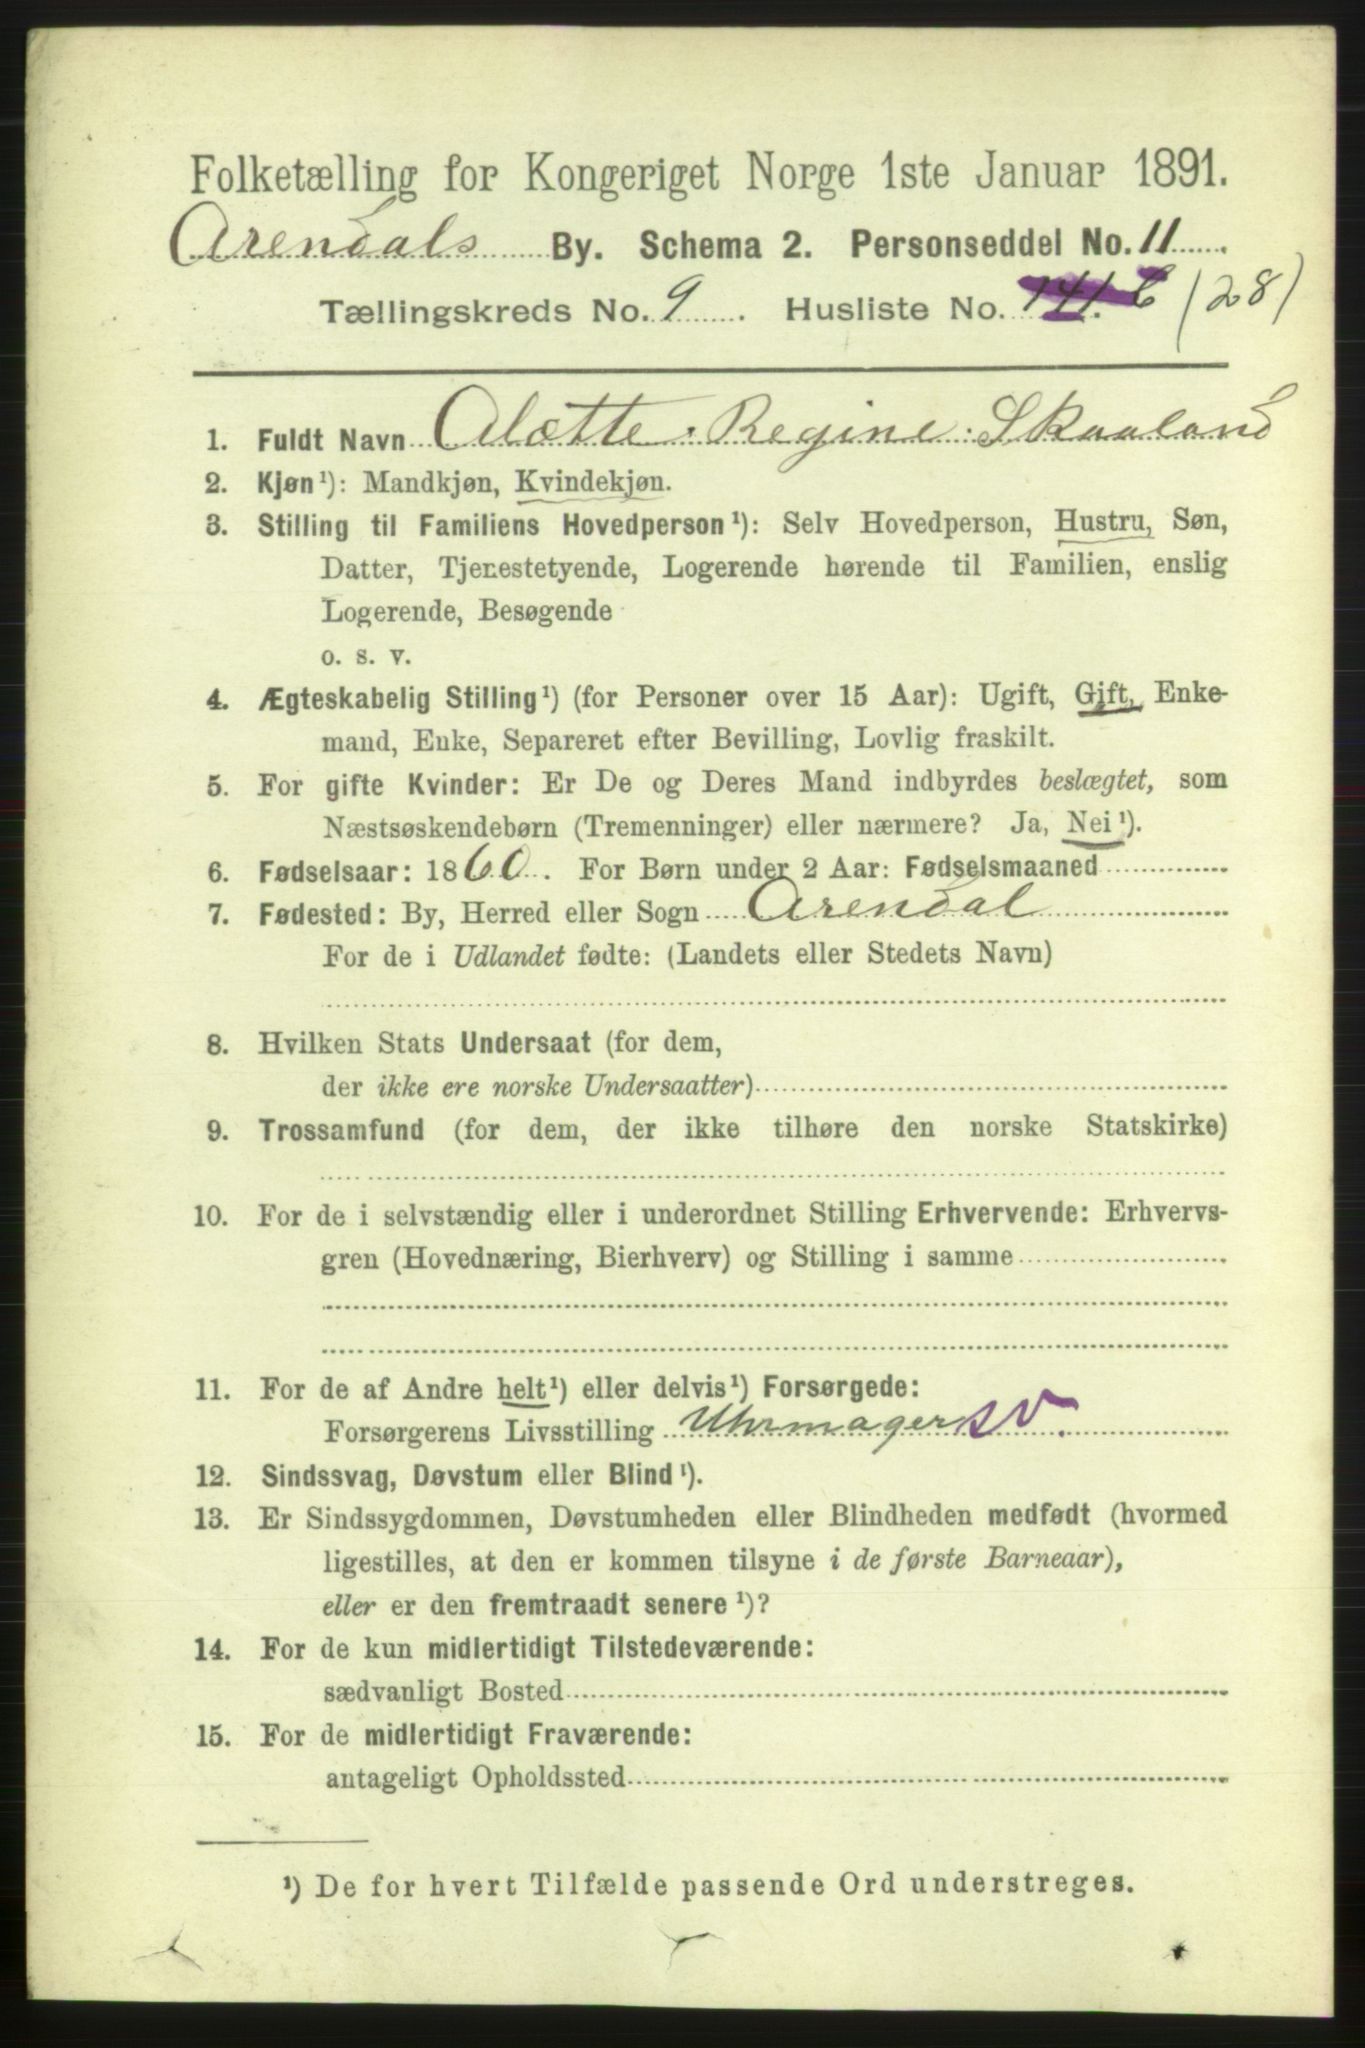 Folketælling for Kongeriget Norge 1ste Januar 1891.
Arendals By. Schema 2. Personseddel No. 11
Tællingskreds No. 9. Husliste No. 141. C (28)
1. Fuldt Navn Alætte Regine Skaaland
2. Kjøn¹): Mandkjøn, Kvindekjøn.
3. Stilling til Familiens Hovedperson¹): Selv Hovedperson, Hustru, Søn,
Datter, Tjenestetyende, Logerende hørende til Familien, enslig
Logerende, Besøgende
o. s. v.
4. Ægteskabelig Stilling¹) (for Personer over 15 Aar): Ugift, Gift, Enke-
mand, Enke, Separeret efter Bevilling, Lovlig fraskilt.
5. For gifte Kvinder: Er De og Deres Mand indbyrdes beslægtet, som
Næstsøskendebørn (Tremenninger) eller nærmere? Ja, Nei¹).
6. Fødselsaar: 1860. For Børn under 2 Aar: Fødselsmaaned
7. Fødested: By, Herred eller Sogn Arendal
For de i Udlandet fødte: (Landets eller Stedets Navn)
8. Hvilken Stats Undersaat (for dem,
der ikke ere norske Undersaatter)
9. Trossamfund (for dem, der ikke tilhøre den norske Statskirke)
10. For de i selvstændig eller i underordnet Stilling Erhvervende: Erhvervs-
gren (Hovednæring, Bierhverv) og Stilling i samme
11. For de af Andre helt¹) eller delvis¹) Forsørgede:
Forsørgerens Livsstilling Uhrmager sv.
12. Sindssvag, Døvstum eller Blind¹).
13. Er Sindssygdommen, Døvstumheden eller Blindheden medfødt (hvormed
ligestilles, at den er kommen tilsyne i de første Barneaar),
eller er den fremtraadt senere¹)?
14. For de kun midlertidigt Tilstedeværende:
sædvanligt Bosted
15. For de midlertidigt Fraværende:
antageligt Opholdssted
¹) De for hvert Tilfælde passende Ord understreges.